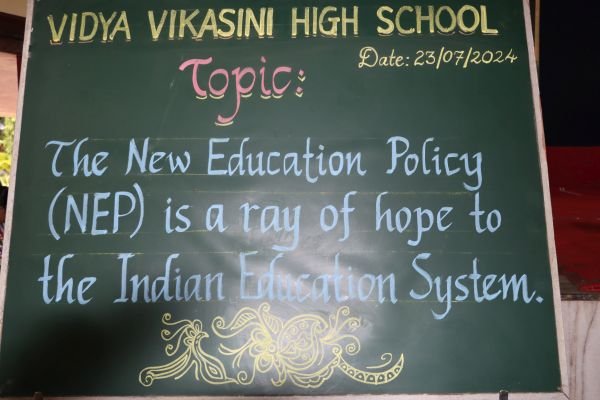 VIDYA VIKASINI HIGH SCHOOL
Date: 23/07/2024
Topic:
The New Education Policy
(NEP) is a ray of hope to
the Indian Education System.